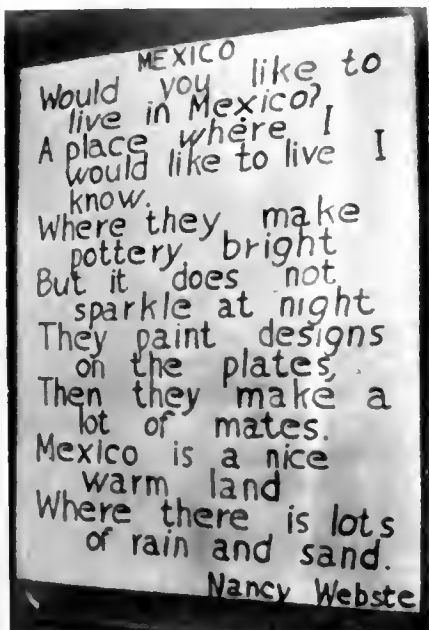 MEXICO
Would you like to
live in Mexico?
A place where I
would like to live I
know.
Where they make
pottery bright
But it does not
sparkle at night
They paint designs
on the plates,
Then they make a
lot of mates.
Mexico is a nice
warm land
Where there is lots
of rain and sand.
Nancy Webste